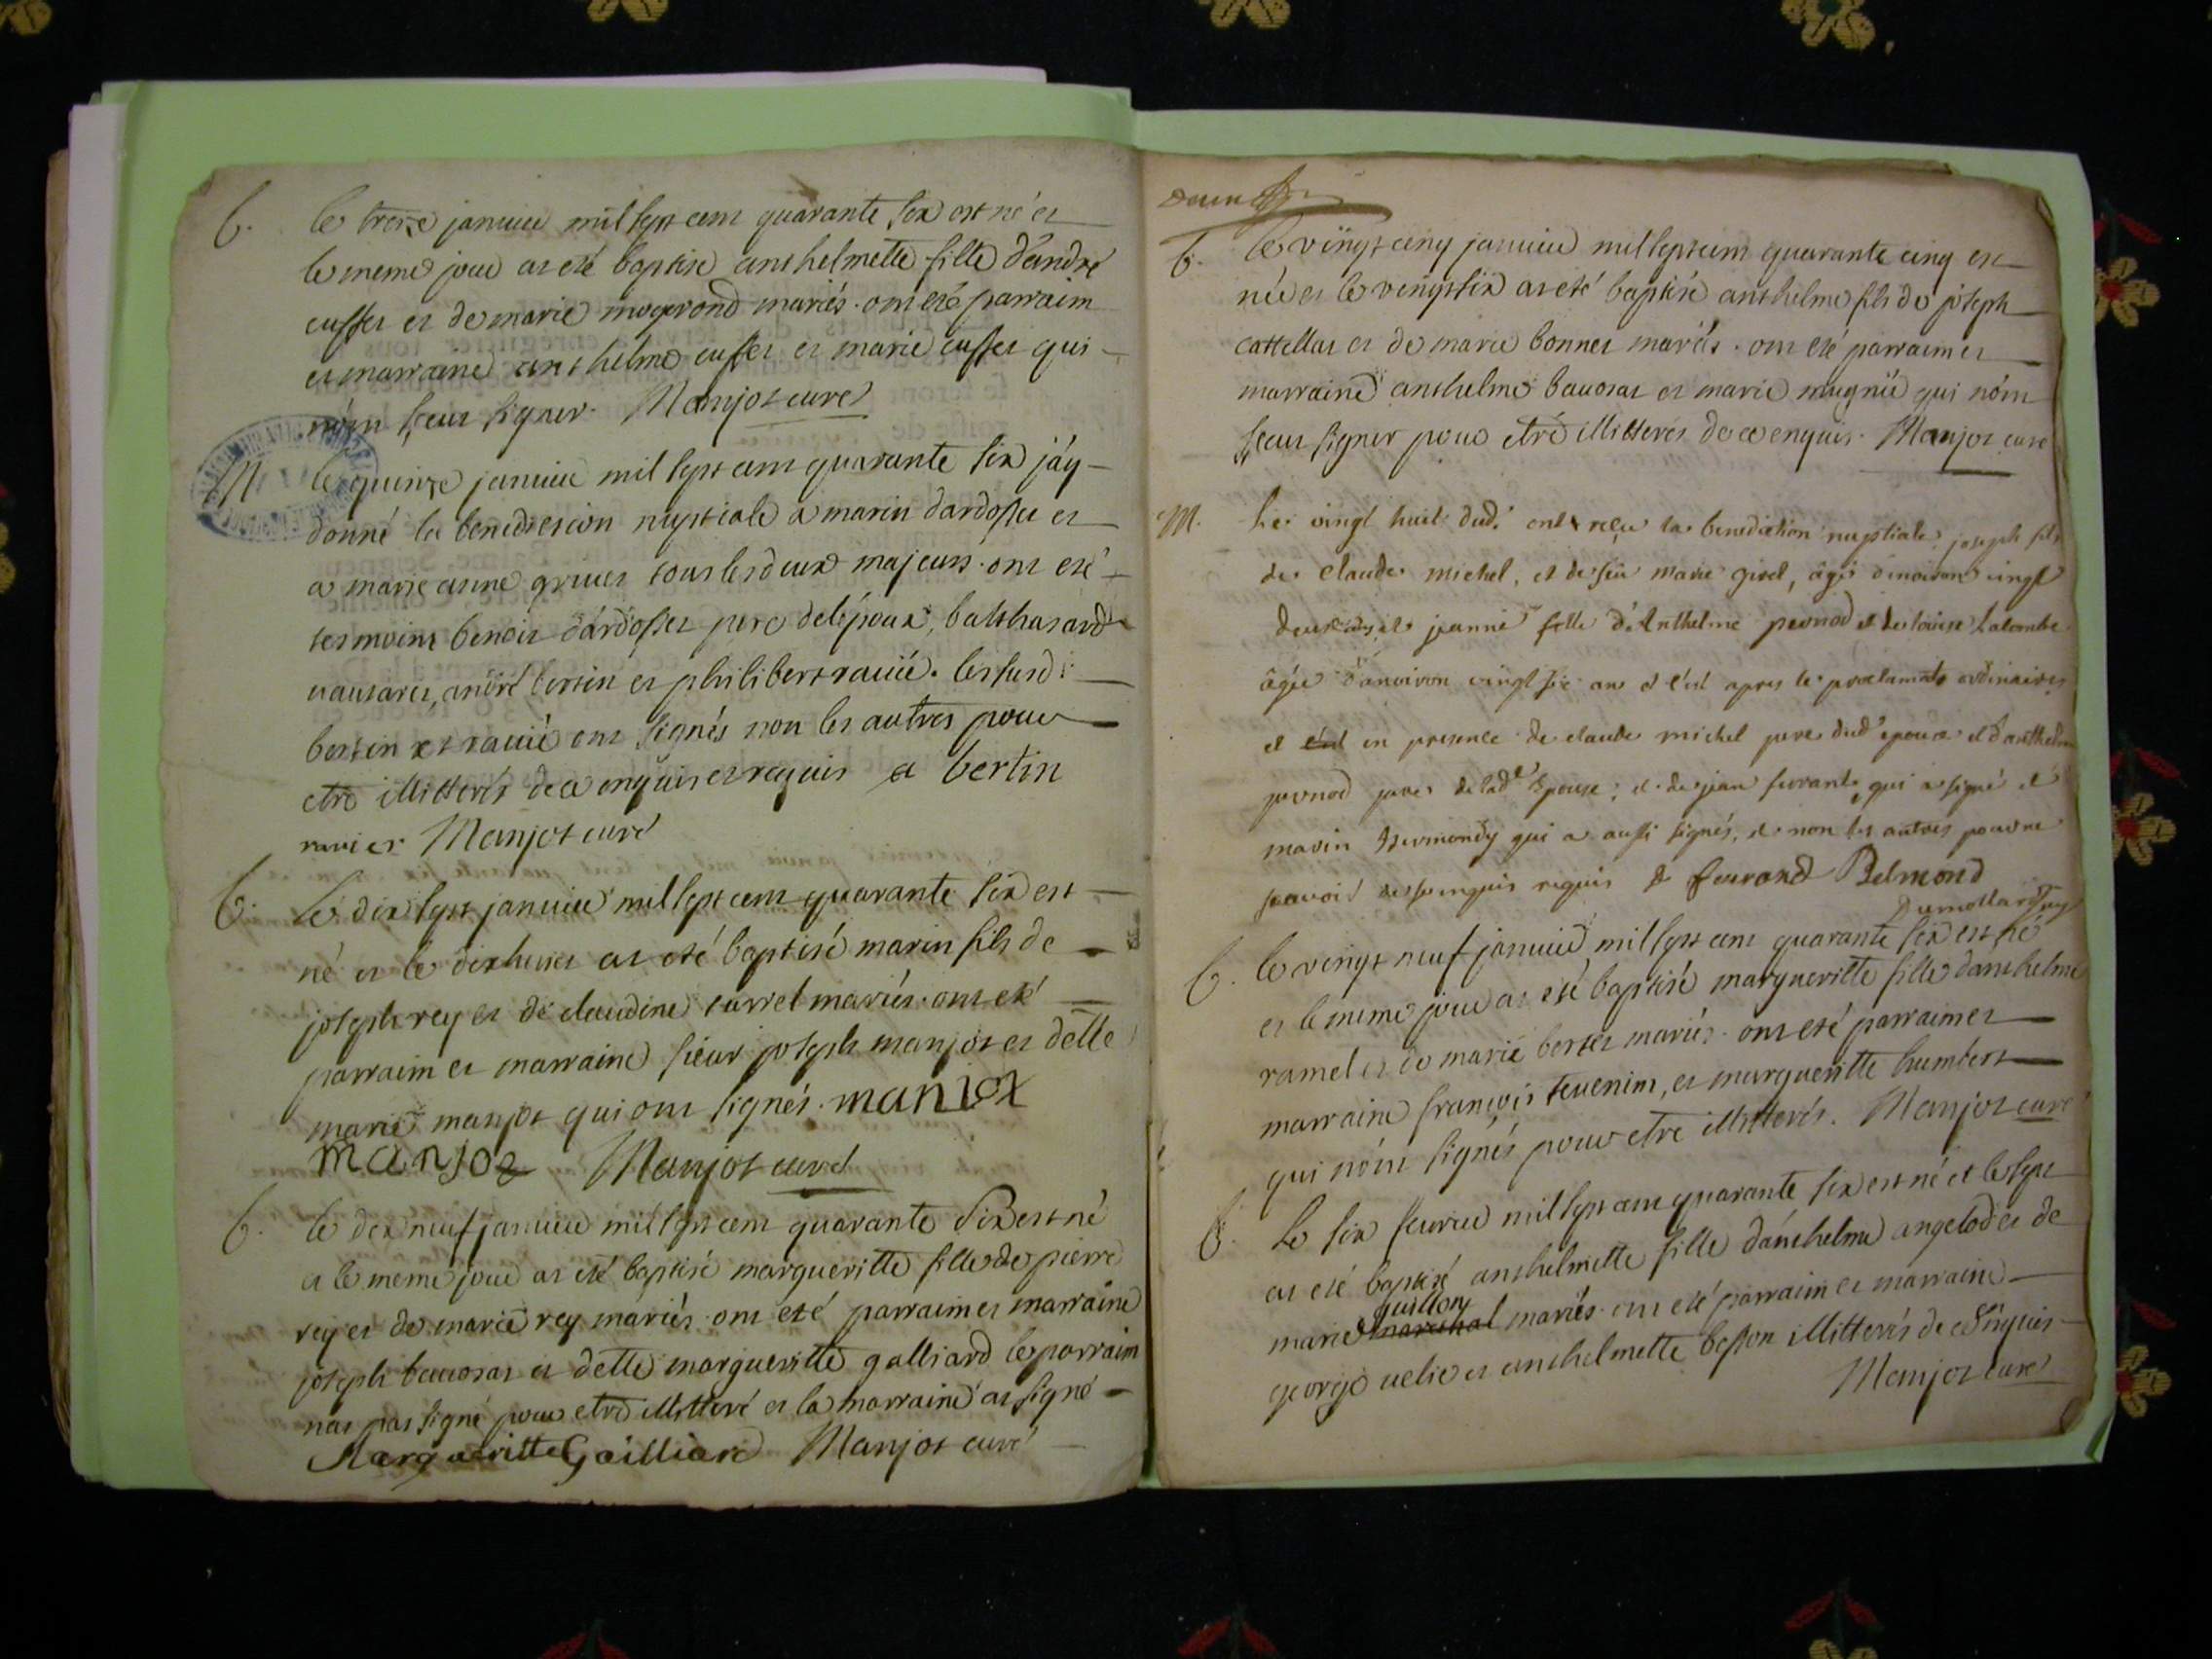 b. le treize janvier mil sept cent quarante six est né et
le meme jour at eté baptisé anthelmette fille d'andré
cusset et de marie mogerond mariés. ont eté parraim
et marraine anthelme cusset et marie cusset qui
nónt sceut signer. Manjot curé
M le quinze janvier mil sept cent quarante six j'áy
donné la benediction nuptiale a marin dardosset et
a marie anne grivet tous les deux majeurs. ont eté
tesmoins benoit dárdosset pere de l'époux, balthasard
vautaret, andré bertin et philibert ravié. les susd:
bertin et ravié ont signés non les autres pour
etre illitterés de ce enquis et requis a bertin
raviet Manjot curé
b. le dix sept janvier mil sept cent quarante six est
né et le dixhuict at eté baptisé marin fils de
joseph rey et de claudine carrel mariés. ont eté
parraim et marraine sieur joseph manjot et delle
marie manjot qui ont signés. manjot
manjot Manjot curé
b. le dix neuf janvier mil sept cent quarante six est né
et le meme jour at eté baptisé margueritte fille de pierre
rey et de marie rey mariés. ont eté parraim et marraine
joseph baudrat et delle margueritte galliard le parraim
nat pas signé pour etre illitteré et la marraine at signé
Margueritte Gailliard Manjot curé
b. le vingt cinq janvier mil sept cent quarante cinq est
née et le vingt six at eté baptisé anthelme fils de joseph
cattellat et de marie bonnet mariés. ont eté parraim et
marraine anthelme baudrat et marie mugnié qui nónt
sceut signer pour etre illitterés de ce enquis. Manjot curé
M. Le vingt huit dud. ont reçu la benediction nuptiale joseph fils
de claude michel, et de feüe marie girel, âgé d'environ vingt
deux ans, et jeanne fille d'Anthelme pernod et de loüise Lalombe
âgée d'environ vingt six ans et c'est apres les proclamats ordinaires
et en presence de claude michel pere dud. epoux et d'anthelme
pernod pere de lade. Epouse; et de jean ferrant qui a signé et
marin Bermondy qui a aussi signés, et non les autres pour ne
sçavoir de ce enquis requis ferrand Belmond
Dumollard
b. le vingt neuf janvier mil sept cent quarante six est né
et le meme jour at eté baptisé margueritte fille danthelme
ramel et de marie bertet mariés. ont eté parraim et
marraine françois tevenim, et margueritte humbert
qui nónt signés pour etre illitterés. Manjot curé
b. Le six feuvrier mil sept cent quarante six est né et le sept
at eté baptisé anthelmette fille dánthelme angelod et de
marie guillon mariés. ont eté parraim et marraine
george velie et anthelmette besson illitterés de ce enquis
Manjot curé